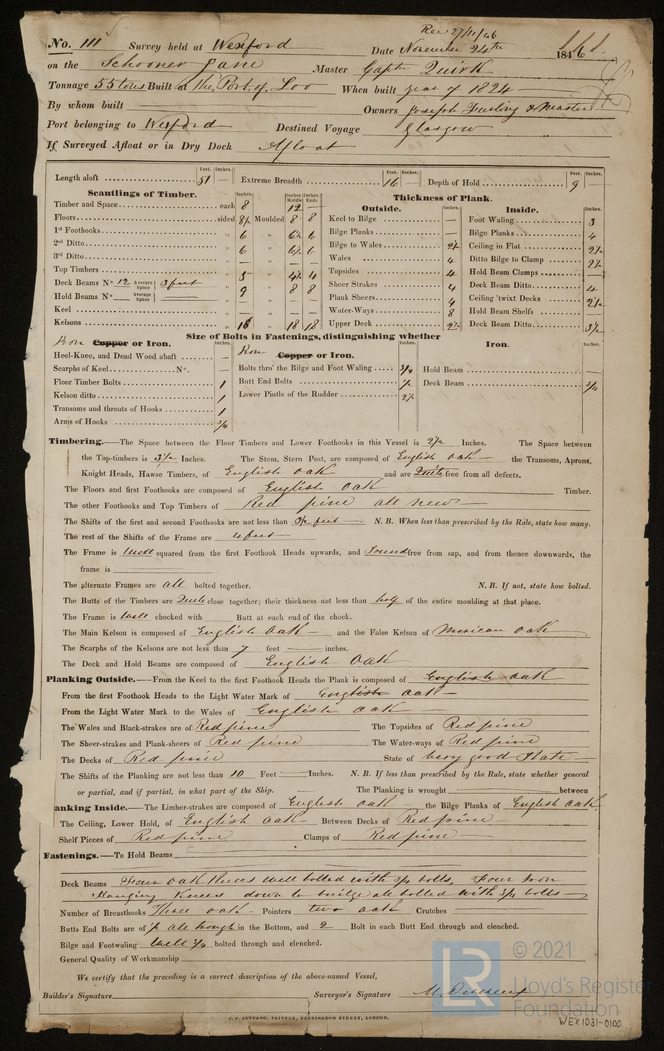 Rec 27/11/46
No. 111 Survey held at Wexford Date November 24th 1846 111
on the Schooner Jane Master Captn Quirk
Tonnage 55 tons Built at the Port of Loo When built year of 1824
By whom built Owners Joseph & Master
Port belonging to Wexford Destined Voyage Glasgow
If Surveyed Afloat or in Dry Dock Afloat
Feet. Inches. Feet. Inches. Feet. Inches.
Length aloft 51 — Extreme Breadth 16 — Depth of Hold 9
Scantlings of Timber. Inches. Inches Middle Inches Ends Thickness of Plank.
Outside. Inches. Inside. Inches.
Timber and Space each 8 12 —
Floors sided 8½ Moulded 8 8
1st Foothooks " 6 " 6½ 6
2nd Ditto " 6 " 6½ 6
3rd Ditto "
Top Timbers " 5 " 4½ 4
Deck Beams No 12 Average Space 3 feet 9 8 8
Hold Beams No — Average Space
Keel
Kelsons " 16 " 18 18
Keel to Bilge —
Bilge Planks —
Bilge to Wales 2½
Wales 4
Topsides 4
Sheer Strakes 4
Plank Sheers 4
Water-Ways 8
Upper Deck 2½
Foot Waling 3
Bilge Planks 4
Ceiling in Flat 2½
Ditto Bilge to Clamp 2½
Hold Beam Clamps —
Deck Beam Ditto 4
Ceiling 'twixt Decks 2½
Hold Beam Shelfs —
Deck Beam Ditto 3½
Size of Bolts in Fastenings, distinguishing whether
Iron Copper or Iron.
Heel-Knee, and Dead Wood abaft —
Scarphs of Keel No. —
Floor Timber Bolts 1
Kelson ditto 1
Transoms and throats of Hooks 1
Arms of Hooks ¾
Iron Copper or Iron. Inches.
Bolts thro' the Bilge and Foot Waling ¾
Butt End Bolts ½
Lower Pintle of the Rudder 2½
Iron. Inches.
Hold Beam —
Deck Beam ¾
Timbering.—The Space between the Floor Timbers and Lower Foothooks in this Vessel is 2½ Inches. The Space between
the Top-timbers is 3½ Inches. The Stem, Stern Post, are composed of English Oak the Transoms, Aprons,
Knight Heads, Hawse Timbers, of English Oak and are Quite free from all defects.
The Floors and first Foothooks are composed of English Oak Timber.
The other Foothooks and Top Timbers of Red pine all new
The Shifts of the first and second Foothooks are not less than 3½ feet N. B. When less than prescribed by the Rule, state how many.
The rest of the Shifts of the Frame are 4 feet
The Frame is Well squared from the first Foothook Heads upwards, and Sound free from sap, and from thence downwards, the
frame is
The alternate Frames are all bolted together. N. B. If not, state how bolted.
The Butts of the Timbers are Quite close together; their thickness not less than half of the entire moulding at that place.
The Frame is Well chocked with Butt at each end of the chock.
The Main Kelson is composed of English Oak and the False Kelson of Mexican Oak
The Scarphs of the Kelsons are not less than 7 feet — inches.
The Deck and Hold Beams are composed of English Oak
Planking Outside.—From the Keel to the first Foothook Heads the Plank is composed of English oak
From the first Foothook Heads to the Light Water Mark of English oak
From the Light Water Mark to the Wales of English oak
The Wales and Black-strakes are of Red pine The Topsides of Red pine
The Sheer-strakes and Plank-sheers of Red pine The Water-ways of Red pine
The Decks of Red pine State of very good State
The Shifts of the Planking are not less than 10 Feet — Inches. N. B. If less than prescribed by the Rule, state whether general
or partial, and if partial, in what part of the Ship. The Planking is wrought between
anking Inside.—The Limber-strakes are composed of English Oak the Bilge Planks of English Oak
The Ceiling, Lower Hold, of English Oak Between Decks of Red pine
Shelf Pieces of Red pine Clamps of Red pine
Fastenings.—To Hold Beams
Deck Beams Four oak Knees well bolted with ¾ bolts, Four Iron
Hanging Knees down to bilge all bolted with ¾ bolts
Number of Breasthooks Three oak Pointers two oak Crutches
Butts End Bolts are of ½ all through in the Bottom, and 2 Bolt in each Butt End through and clenched.
Bilge and Footwaling Well ¾ bolted through and clenched.
General Quality of Workmanship
We certify that the preceding is a correct description of the above-named Vessel,
Builder's Signature Surveyor's Signature
C. F. SEYFANG, PRINTER, FARRINGDON STREET, LONDON.
LR © 2021
Lloyd's Register
Foundation
WEX1D31-0100